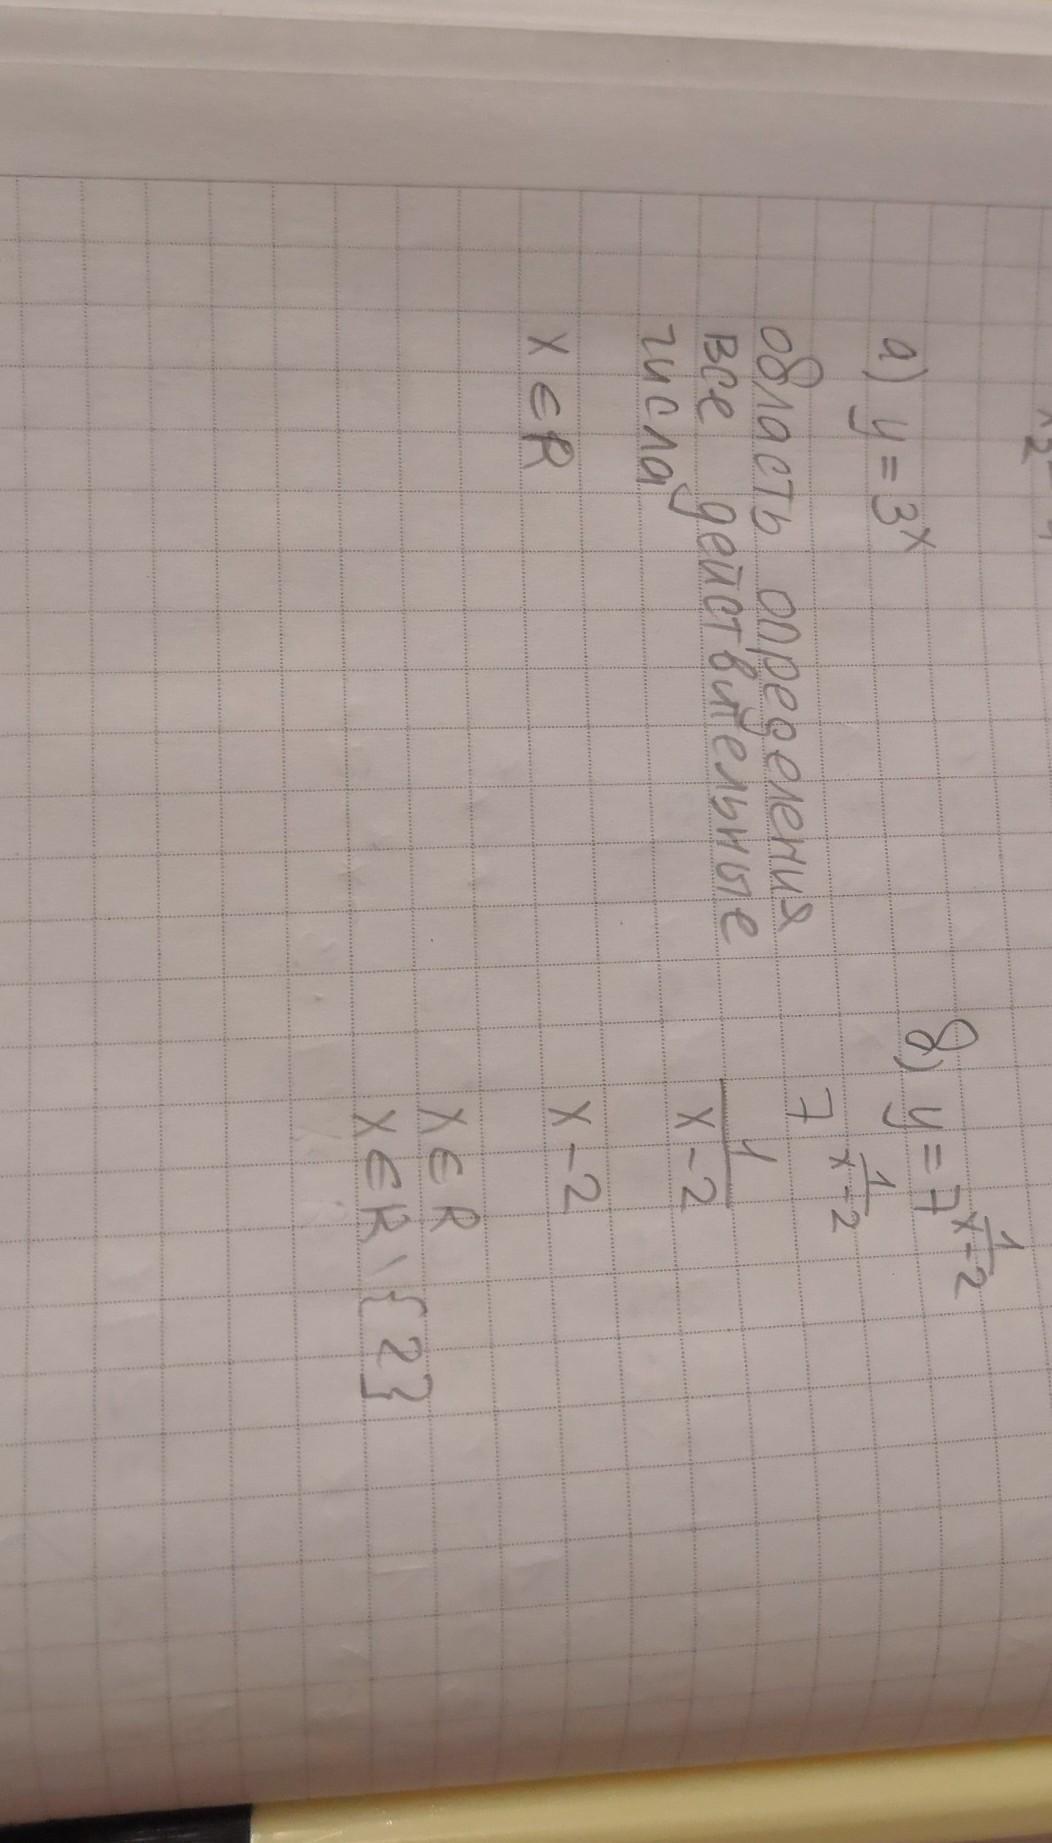 а) y = 3^x
область определения
все действительные
числа
x ∈ R
б) y = 7^(1/(x-2))
7^(1/(x-2))
1/(x-2)
x-2
x ∈ R
x ∈ R \ {2}